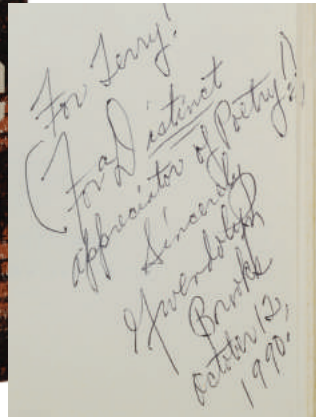 For Terry!
(For a Distinct
appreciator of Poetry!)
Sincerely
Gwendolyn
Brooks
October 12,
1990.